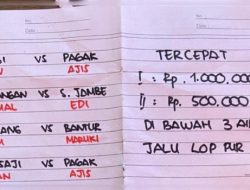 No.
Date
SI VS PAGAK
AJIS
NGAN VS S. JAMBE
MAL EDI
ANG VS BANTUR
MARUKI
SAJI VS PAGAK
AN AJIS
No.
Date
TERCEPAT
I : Rp. 1.000.000
II : Rp. 500.000
DI BAWAH 3 AI
JALU LOP PUR